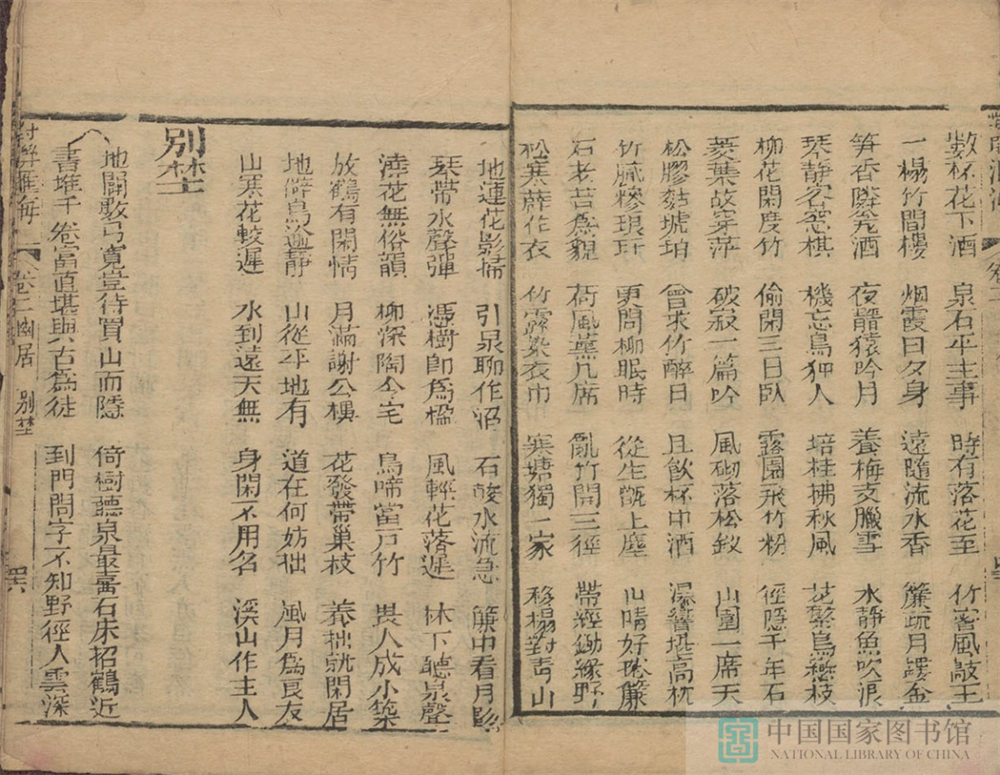 數杯花下酒 泉石平主事 時有落花至 竹密風敲玉
一榻竹間樓 烟霞日夕身 遠隨流水香 簾疏月鏤金
笋香隣 酒 夜 猿吟月 養梅支臘雪 水靜魚吹浪
琴靜客 棋 機忘鳥狎人 培桂拂秋風 花繁鳥 枝
柳花閑度竹 偷閑三日臥 露園飛竹粉 徑隱千年石
菱葉故穿萍 破寂一篇吟 風砌落松釵 山圍一席天
松膠黏琥珀 曾求竹醉日 且飲杯中酒 瀑響 高枕
竹膩糝琅玕 更問柳眠時 從生甑上塵 山晴好捲簾
石老苔爲貌 荷風薰几席 亂竹開三徑 帶經鋤綠野
松寒薜作衣 竹露染衣巾 寒塘獨一家 移榻對靑山
地蓮花影掃 引泉聊作沼 石酸水流急 簾中看月影
琴帶水聲彈 憑樹卽爲楹 風輕花落遲 林下聽泉聲
澆花無俗韻 柳深陶令宅 鳥啼當戶竹 畏人成小築
放鶴有閑情 月滿謝公樓 花發帶巢枝 養拙就閑居
地僻鳥逾靜 山從平地有 道在何妨拙 風月爲良友
山寒花較遲 水到遠天無 身閑不用名 溪山作主人
別埜
地闢數弓寬豈待買山而隱 倚樹聽泉最喜石床招鶴近
書堆千卷富直堪與古爲徒 到門問字不知野徑人雲深
卷二幽居 別埜